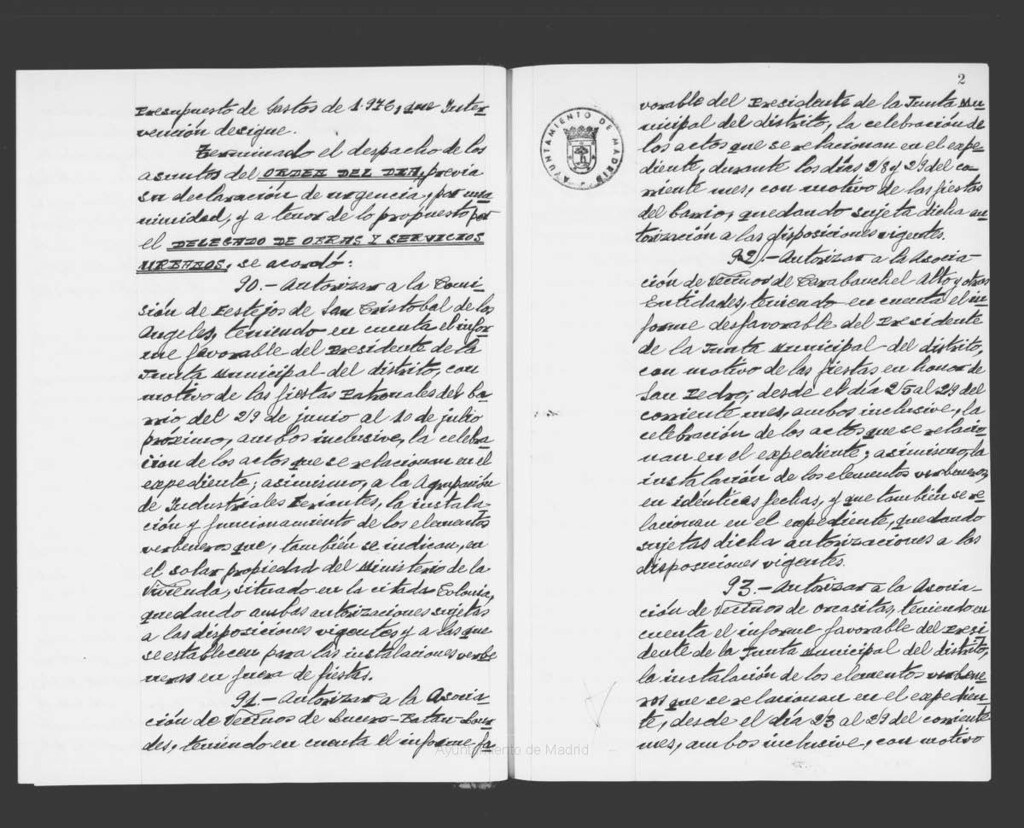 Presupuesto de Gastos de 1.976, que Inter
vención designe.
Terminado el despacho de los
asuntos del ORDEN DEL DIA, previa
su declaración de urgencia, por una
nimidad, y a tenor de lo propuesto por
el DELEGADO DE OBRAS Y SERVICIOS
URBANOS, se acordó:
90.- Autorizar a la Comi
sión de Festejos de San Cristobal de los
Angeles, teniendo en cuenta el infor
me favorable del Presidente de la
Junta Municipal del distrito, con
motivo de las fiestas Patronales del ba
rrio del 29 de junio al 10 de julio
próximo, ambos inclusive, la celebra
ción de los actos que se relacionan en el
expediente; asimismo, a la Agrupación
de Industriales Feriantes, la instala
ción y funcionamiento de los elementos
verbeneros que, también se indican, en
el solar propiedad del Ministerio de la
Vivienda, situado en la citada Colonia,
quedando ambas autorizaciones sujetas
a las disposiciones vigentes y a las que
se establecen para las instalaciones verbe
neras en fuera de fiestas.
91.- Autorizar a la Asocia
ción de Vecinos de Lucero-Batan-Lour
des, teniendo en cuenta el informe fa
2
AYUNTAMIENTO DE MADRID
vorable del Presidente de la Junta Mu
nicipal del distrito, la celebración de
los actos que se relacionan en el expe
diente, durante los días 28 y 29 del co
rriente mes, con motivo de las fiestas
del barrio, quedando sujeta dicha au
torización a las disposiciones vigentes.
92.- Autorizar a la Asocia
ción de Vecinos de Carabanchel Alto y otras
Entidades, teniendo en cuenta el in
forme desfavorable del Presidente
de la Junta Municipal del distrito,
con motivo de las fiestas en honor de
San Pedro; desde el día 25 al 29 del
corriente mes, ambos inclusive, la
celebración de los actos que se relacio
nan en el expediente; asimismo, la
instalación de los elementos verbeneros,
en idénticas fechas, y que también se re
lacionan en el expediente, quedando
sujetas dicha autorizaciones a las
disposiciones vigentes.
93.- Autorizar a la Asocia
ción de Vecinos de Orcasitas, teniendo en
cuenta el informe favorable del Presi
dente de la Junta Municipal del distrito,
la instalación de los elementos verbene
ros que se relacionan en el expedien
te, desde el día 23 al 29 del corriente
mes, ambos inclusive, con motivo
Ayuntamiento de Madrid